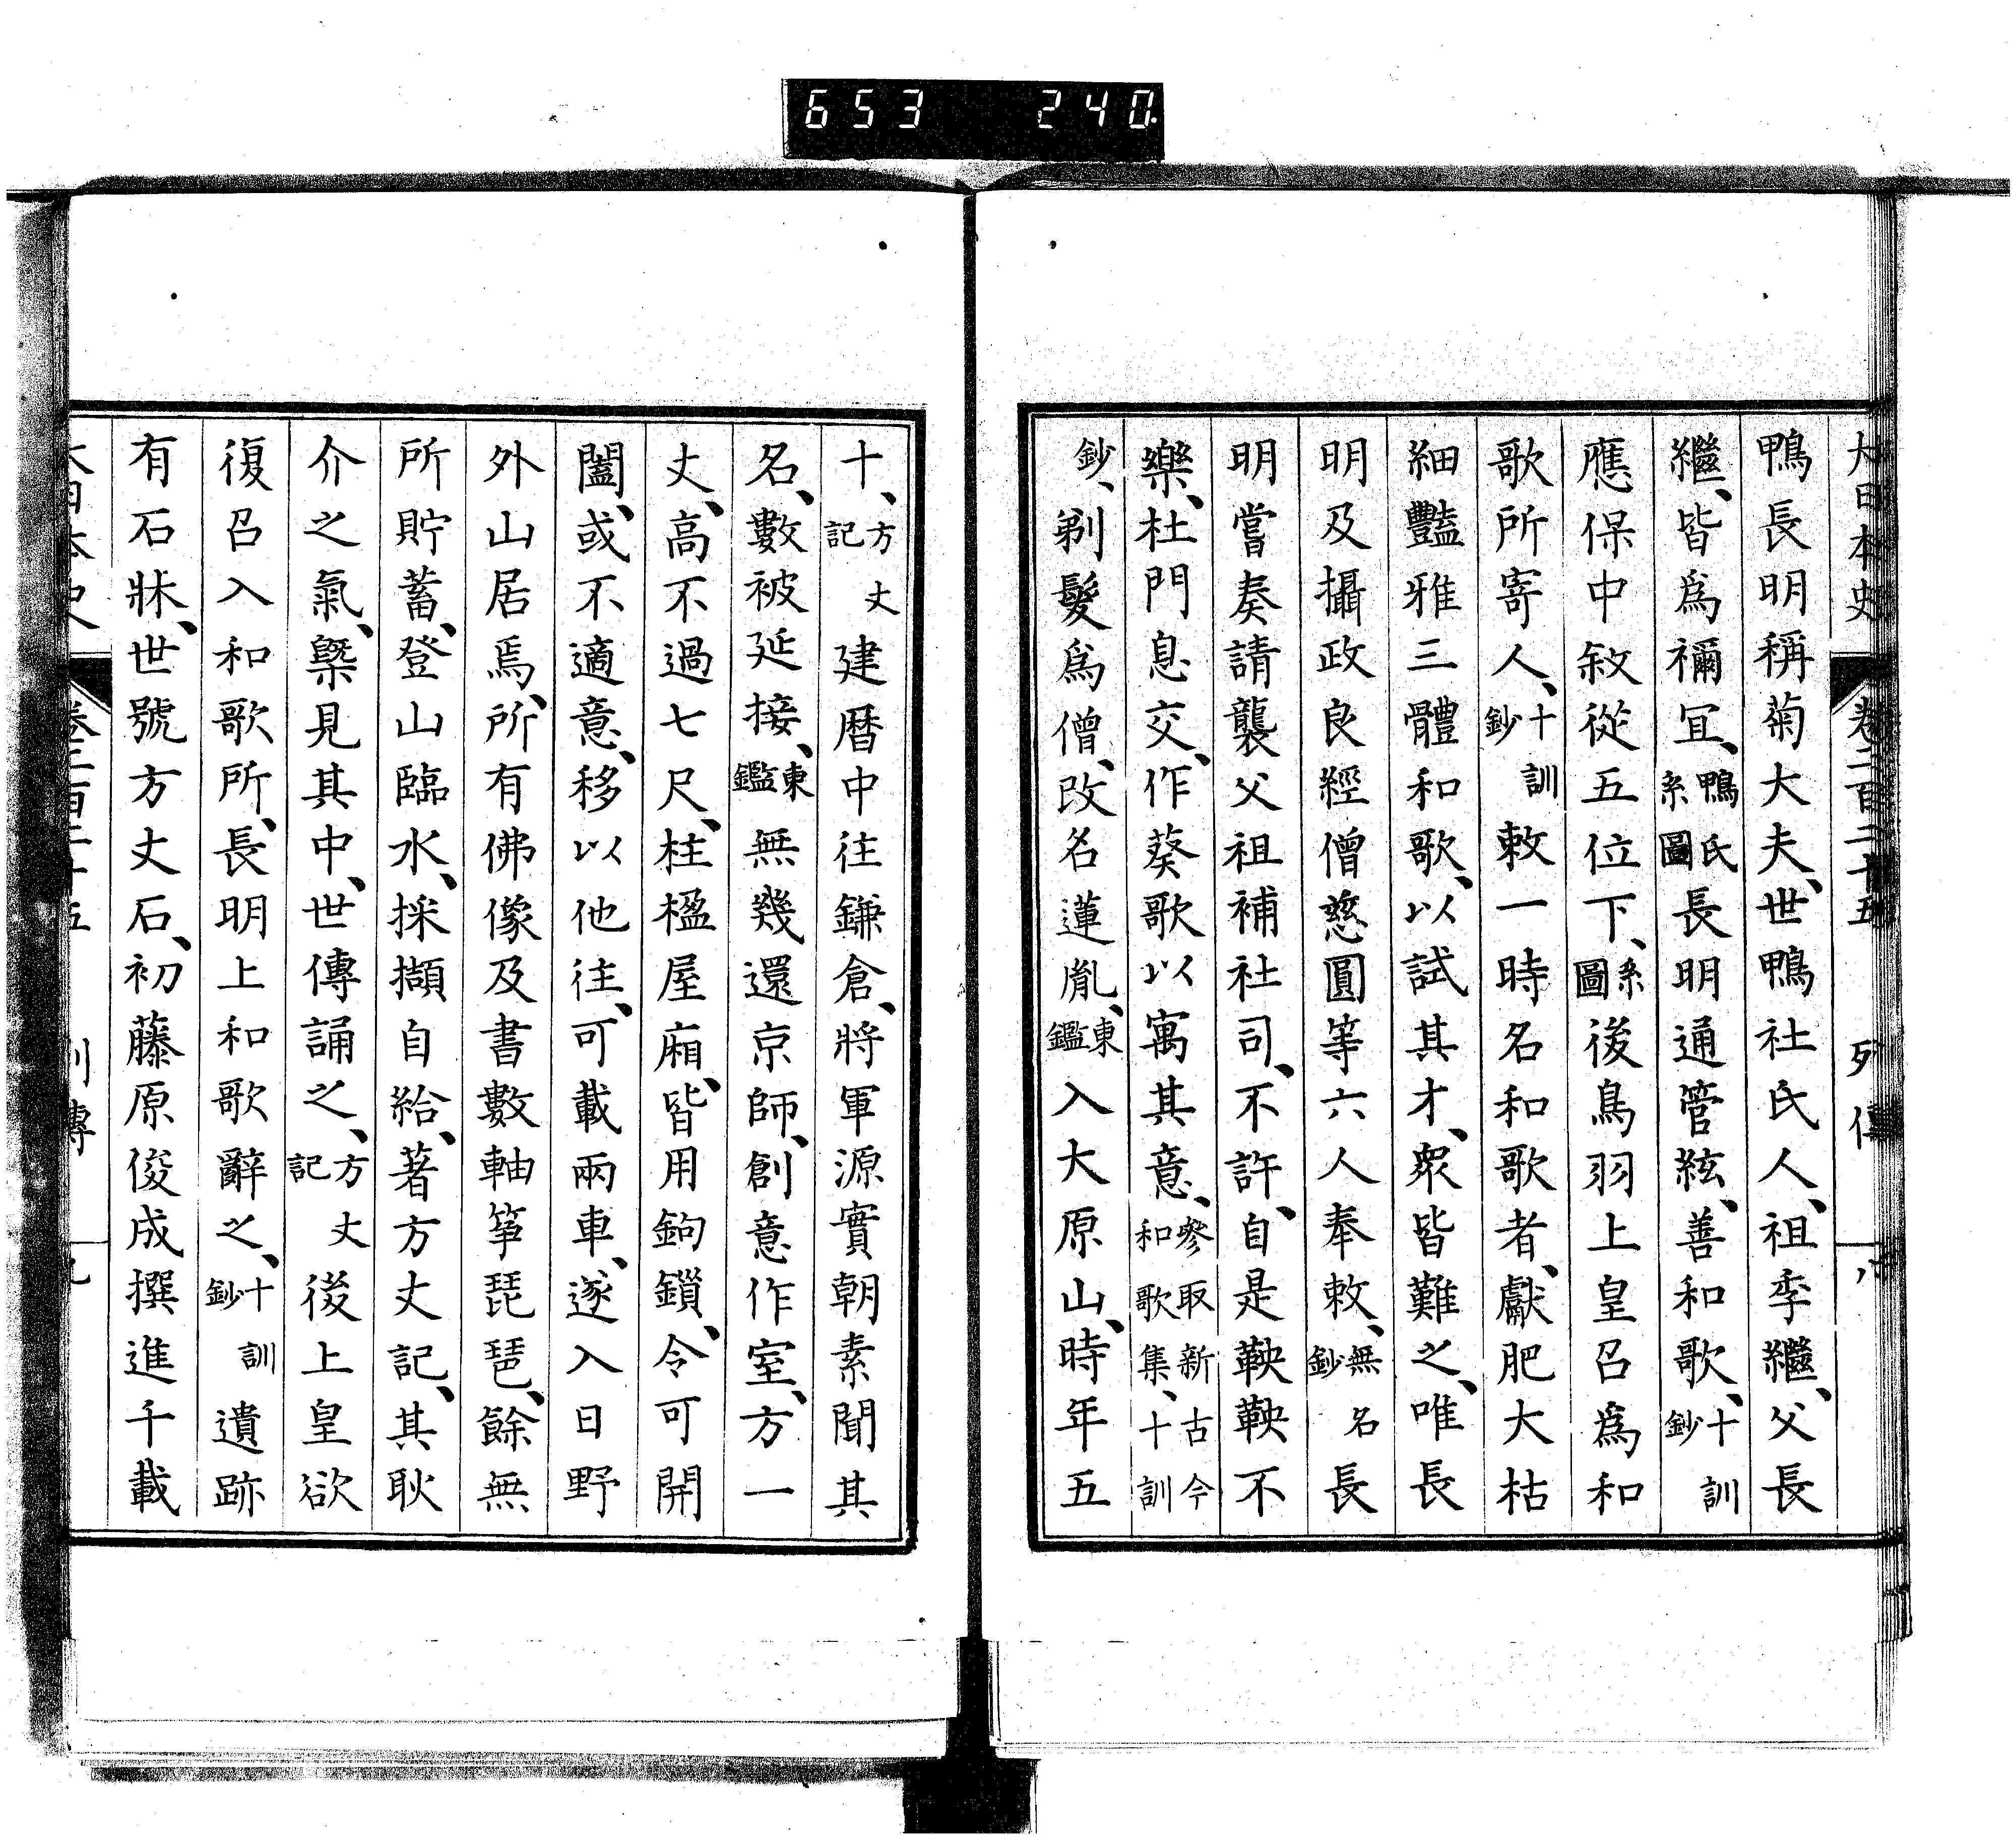 653 240
大日本史 卷二百二十五 列傳 八
鴨長明稱菊大夫、世鴨社氏人、祖季繼、父長
繼、皆爲禰宜、鴨氏系圖長明通管絃、善和歌、十訓鈔
應保中敍從五位下、系圖後鳥羽上皇召爲和
歌所寄人、十訓鈔敕一時名和歌者、獻肥大枯
細豔雅三體和歌、以試其才、衆皆難之、唯長
明及攝政良經僧慈圓等六人奉敕、無名鈔長
明嘗奏請襲父祖補社司、不許、自是鞅鞅不
樂、杜門息交、作葵歌以寓其意、參取新古今和歌集、十訓
鈔、剃髮爲僧、改名蓮胤、東鑑入大原山、時年五
十、方丈記建曆中往鎌倉、將軍源實朝素聞其
名、數被延接、東鑑無幾還京師、創意作室、方一
丈、高不過七尺、柱楹屋廂、皆用鉤鎖、令可開
闔、或不適意、移以他往、可載兩車、遂入日野
外山居焉、所有佛像及書數軸筝琵琶、餘無
所貯蓄、登山臨水、採擷自給、著方丈記、其耿
介之氣、槩見其中、世傳誦之、方丈記後上皇欲
復召入和歌所、長明上和歌辭之、十訓鈔遺跡
有石牀、世號方丈石、初藤原俊成撰進千載
大日本史 卷二百二十五 列傳 九